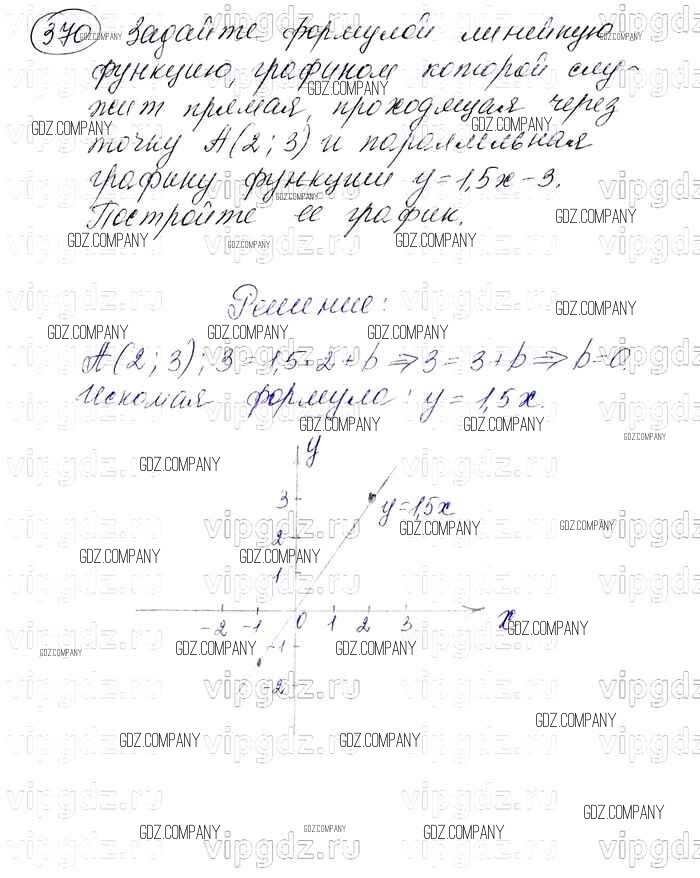 370 Задайте формулой линейную
функцию, графиком которой слу-
жит прямая, проходящая через
точку A(2; 3) и параллельная
графику функции y = 1,5x - 3.
Постройте ее график.
Решение:
A(2; 3); 3 = 1,5·2 + b ⇒ 3 = 3 + b ⇒ b = 0.
Искомая формула: y = 1,5x.
y
3
y=1,5x
2
1
-2 -1 0 1 2 3 x
-1
-2
GDZ.COMPANY
vipgdz.ru